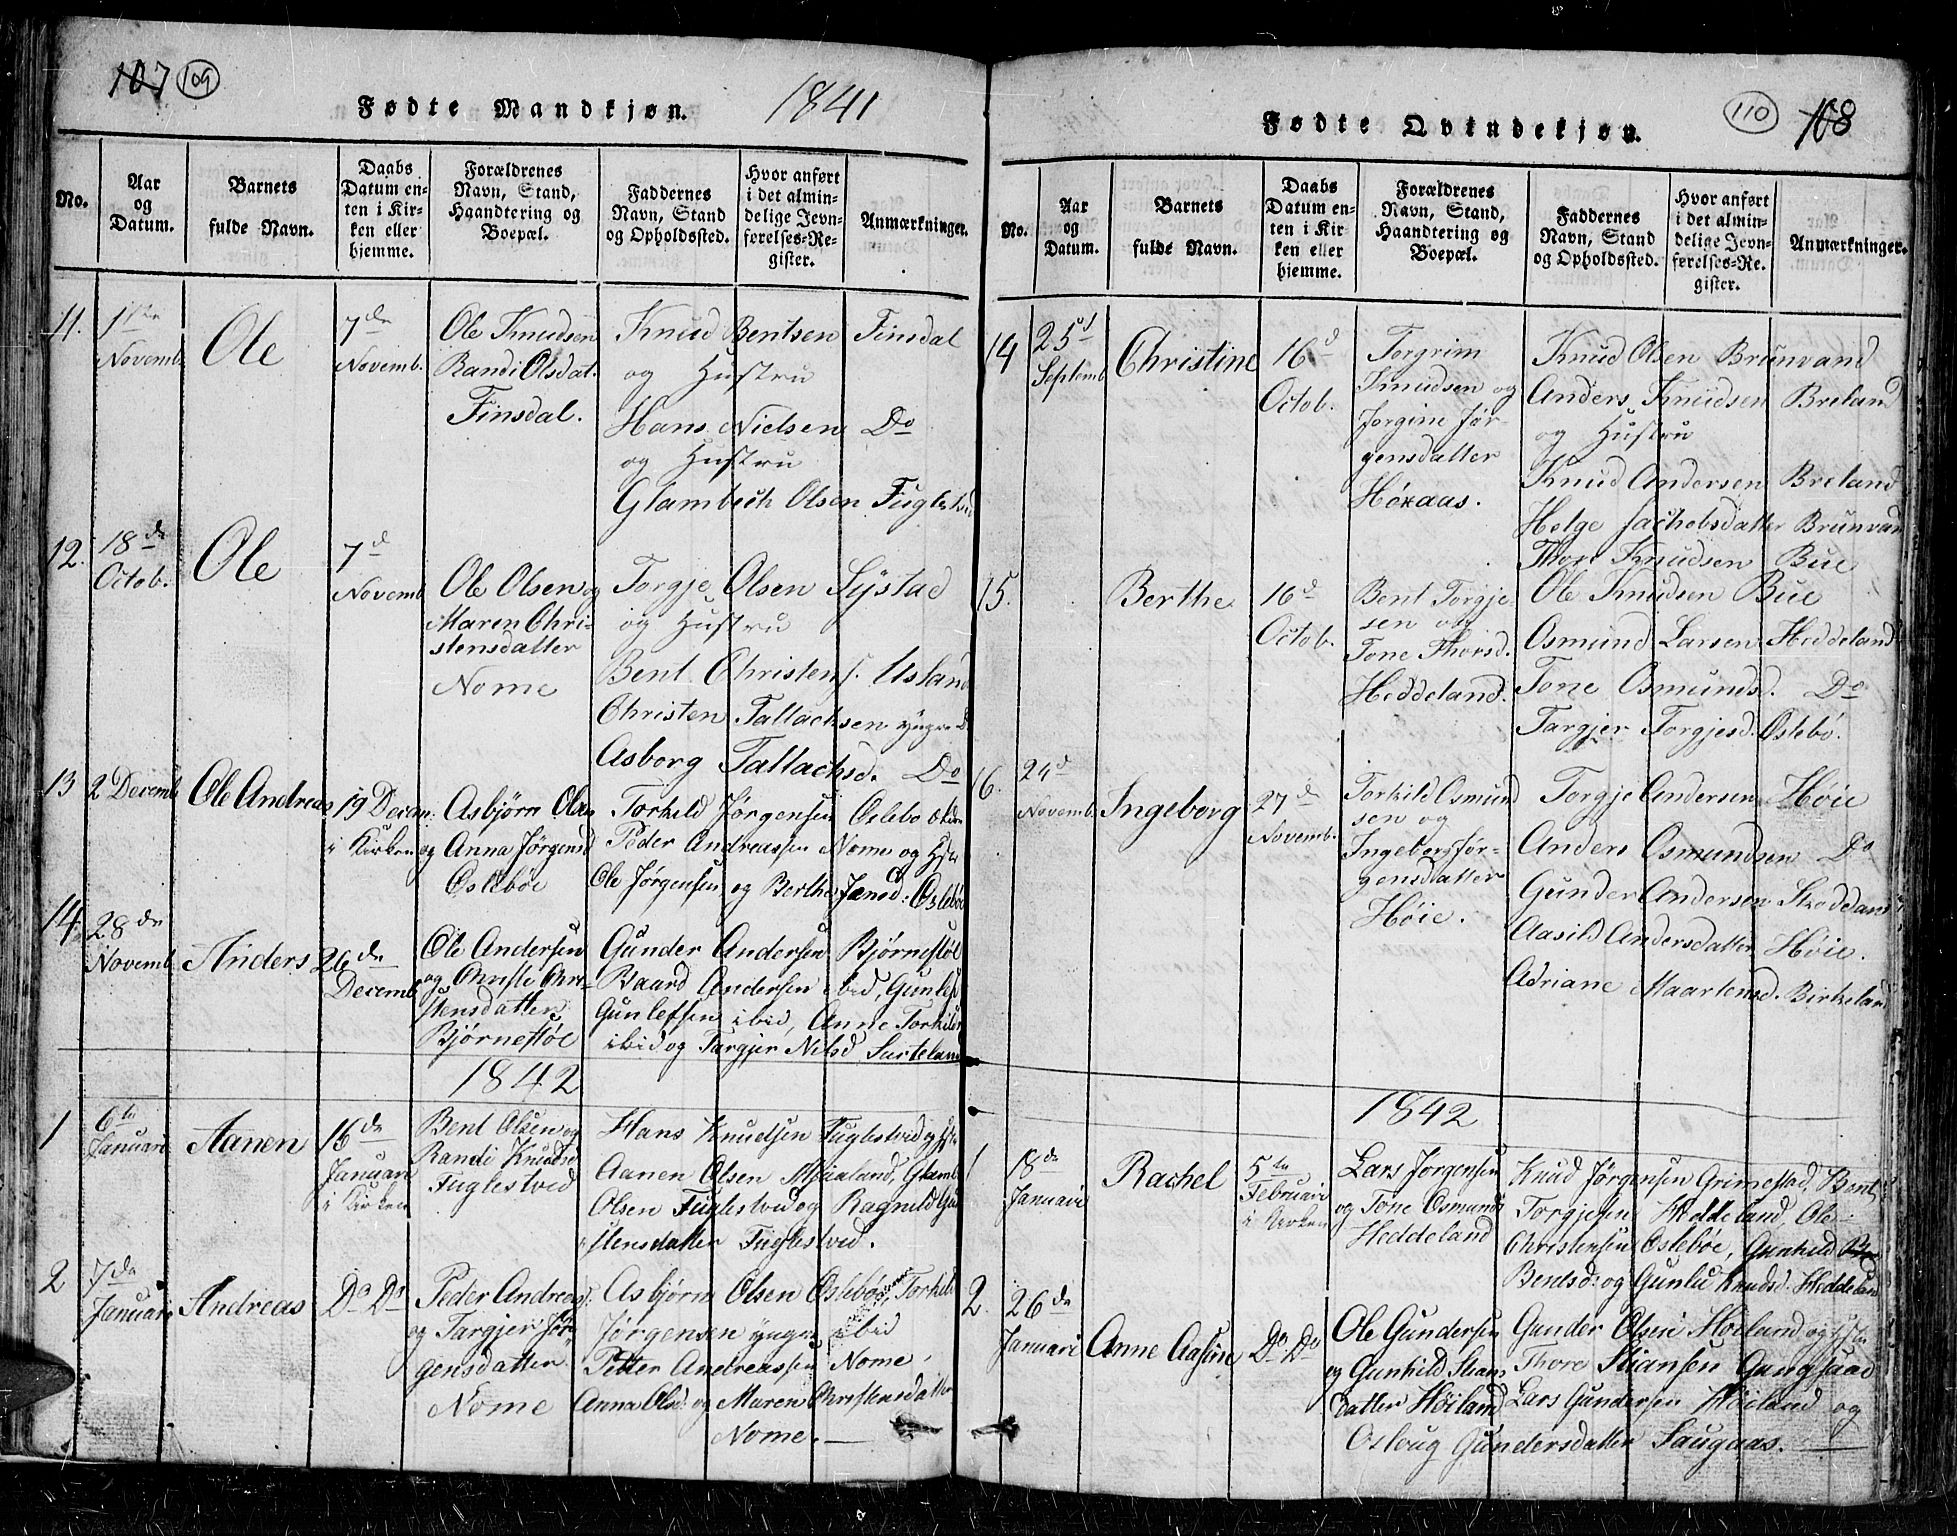 107 109
Fødte Mandkjøn. 1841
No.
Aar
og
Datum.
Barnets
fulde Navn.
Daabs
Datum en-
ten i Kir-
ken eller
hjemme.
Forældrenes
Navn, Stand,
Haandtering og
Boepæl.
Faddernes
Navn, Stand
og Opholdssted.
Hvor anført
i det almin-
delige Jevn-
førelses-Re-
gister.
Anmærkninger.
11.
1ste
Novemb.
Ole
7de
Novemb.
Ole Knudsen
Randi Olsdat.
Finsdal.
Knud Bentsen Finsdal
og Hustru
Hans Nielsen Do
og Hustru
Glambech Olsen
12.
18de
Octob.
Ole
7d
Novemb
Ole Olsen og
Maren Chri-
stensdatter
Nome
Torgje Olsen Sÿstad
og Hustru
Bent Christens. Usland
Christen Tallachsen yngre Do
Asborg Tallachsd. Do
13
2 Decemb
Ole Andreas
19 Decem:
i Kirken
Asbjørn Olsen
og Anna Jørgensd
Oslebøe
Torkild Jørgensen Oslebø
Peder Andreassen Nome og Hstr
Ole Jørgensen og Berthe Jansd: Oslebøe
14.
28de
Novemb
Anders
26de
Decemb
Ole Andersen
og Christi Chri-
stensdatter
Bjørnestøe
Gunder Andersen Bjørnestøe
Baard Andersen ibid, Gunlef
Gunlefsen ibid, Anne Torkilsd
ibid og Targjer Nilsd
1842
1
6te
Januari
Aanen
16de
Januari
i Kirken
Bent Olsen og
Randi Knudsd
Fuglestvid
Hans Knudsen Fuglestvid og Hstr
Aanen Olsen Mjaaland, Glamb
Olsen Fuglestvid og Ragnild
stensdatter Fuglestvid.
2
7de
Januari
Andreas
Do Do
Peder Andreas:
og Targjer Jør-
gensdatter
Nome
Asbjørn Olsen Oslebøe, Torkild
Jørgensen yngre ibid
Petter Andreassen Nome,
Anna Olsd. og Maren Christensdatter
Nome.
110 108
Fødte Qvindekjøn.
No.
Aar
og
Datum.
Barnets
fulde Navn.
Daabs
Datum en-
ten i Kir-
ken eller
hjemme.
Forældrenes
Navn, Stand,
Haandtering og
Boepæl.
Faddernes
Navn, Stand
og Opholdssted.
Hvor anført
i det almin-
delige Jevn-
førelses-Re-
gister.
Anmærkninger.
14
25d
Septemb
Christine
16d
Octob.
Torgrim
Knudsen og
Jorgine Jør-
gensdatter
Høxaas.
Knud Olsen Brunvand
Anders Knudsen Breland
og Hustru
Knud Andersen Breland
Helge Jachobsdatter Brunvan
Thore Knudsen Bue
15.
Berthe
16d
Octob.
Bent Torgje-
sen og
Tone Thorsd.
Heddeland.
Ole Knudsen Bue
Osmund Larsen Heddeland
Tone Osmunds. Do
Targjer Torgjesd. Oslebø.
16.
24d
Novemb.
Ingeborg
27de
Novemb.
Torkild Osmund
sen og
Ingeborg Jør-
gensdatter
Høie.
Torgje Andersen Høie
Anders Osmundsen Do
Gunder Andersen
Aasild Andersdatter Høie.
Adriane Maartensd. Birkeland
1842
1
18de
Januari
Rachel
5te
Februari
i Kirken
Lars Jørgensen
og Tone Osmunds
Heddeland
Knud Jørgensen Grimestad, Bent
Torgjesen Heddeland, Ole
Christensen Oslebøe, Gunhild
Bentsd: og Gunlu Knudsd. Heddeland
2.
26de
Januari
Anne Aasine
Do Do
Ole Gundersen
og Gunhild Stians
datter Høiland
Gunder Olsen Høiland og Hstr
Thore Stiansen Gangsaae
Lars Gundersen Høiland og
Oslaug Gundersdatter Saugaas.